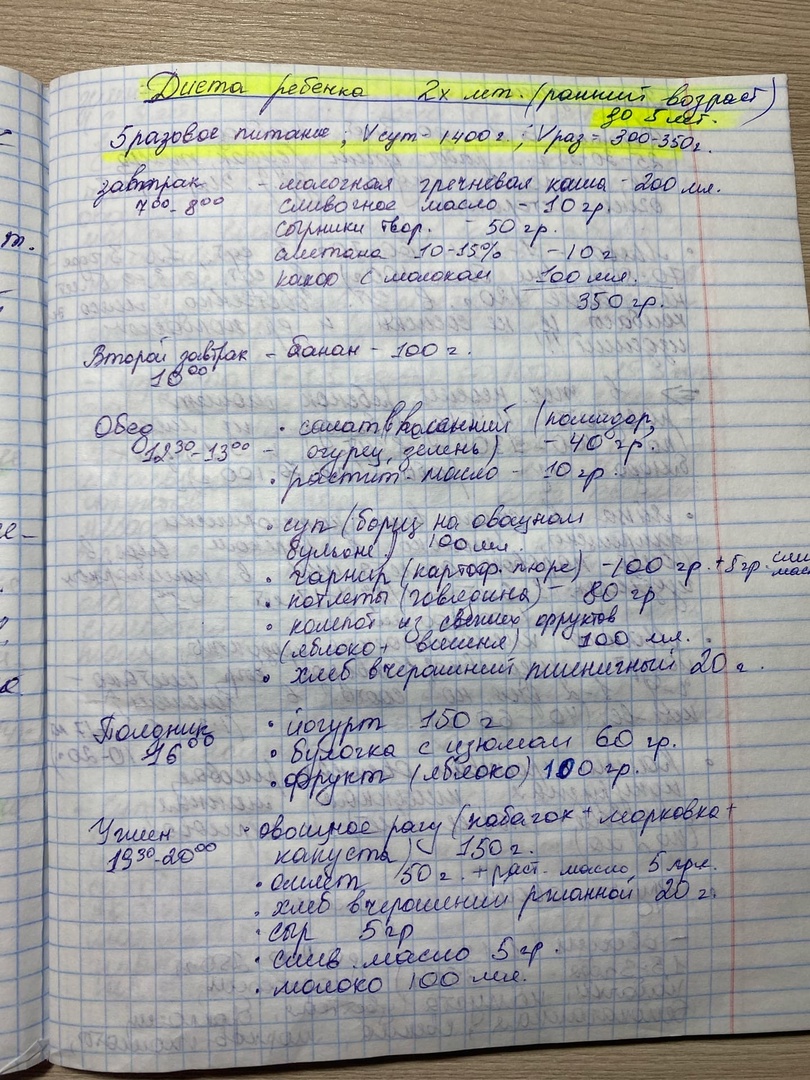 Диета ребенка 2х лет. (ранний возраст)
до 5 лет.
5 разовое питание; Vсут - 1400 г.; Vраз = 300-350г.
завтрак - молочная гречневая каша - 200 мл.
7⁰⁰- 8⁰⁰ сливочное масло - 10 гр.
сырники твор. - 50 гр.
сметана 10-15% - 10 г
какао с молоком 100 мл.
350 гр.
Второй завтрак - банан - 100 г.
10⁰⁰
Обед • салат (помидор,
12³⁰-13⁰⁰ - огурец, зелень) - 40 гр.
• растит. масло - 10 гр.
• суп (борщ на овощном
бульоне) 100 мл.
• гарнир (картоф. пюре) - 100 гр. + 5 гр. слив
масл
• котлеты (говядина) - 80 гр
• компот из свежих фруктов
(яблоко + вишня) 100 мл.
• хлеб вчерашний пшеничный 20 г.
Полдник • йогурт 150 г
16⁰⁰ • булочка с изюмом 60 гр.
• фрукт (яблоко) 100 гр.
Ужин • овощное рагу (кабачок + морковка +
19³⁰-20⁰⁰ капуста) 150 г.
• омлет 50 г. + раст. масло 5 грм.
• хлеб вчерашний ржанной 20 г.
• сыр 5 гр
• слив. масло 5 гр.
• молоко 100 мл.